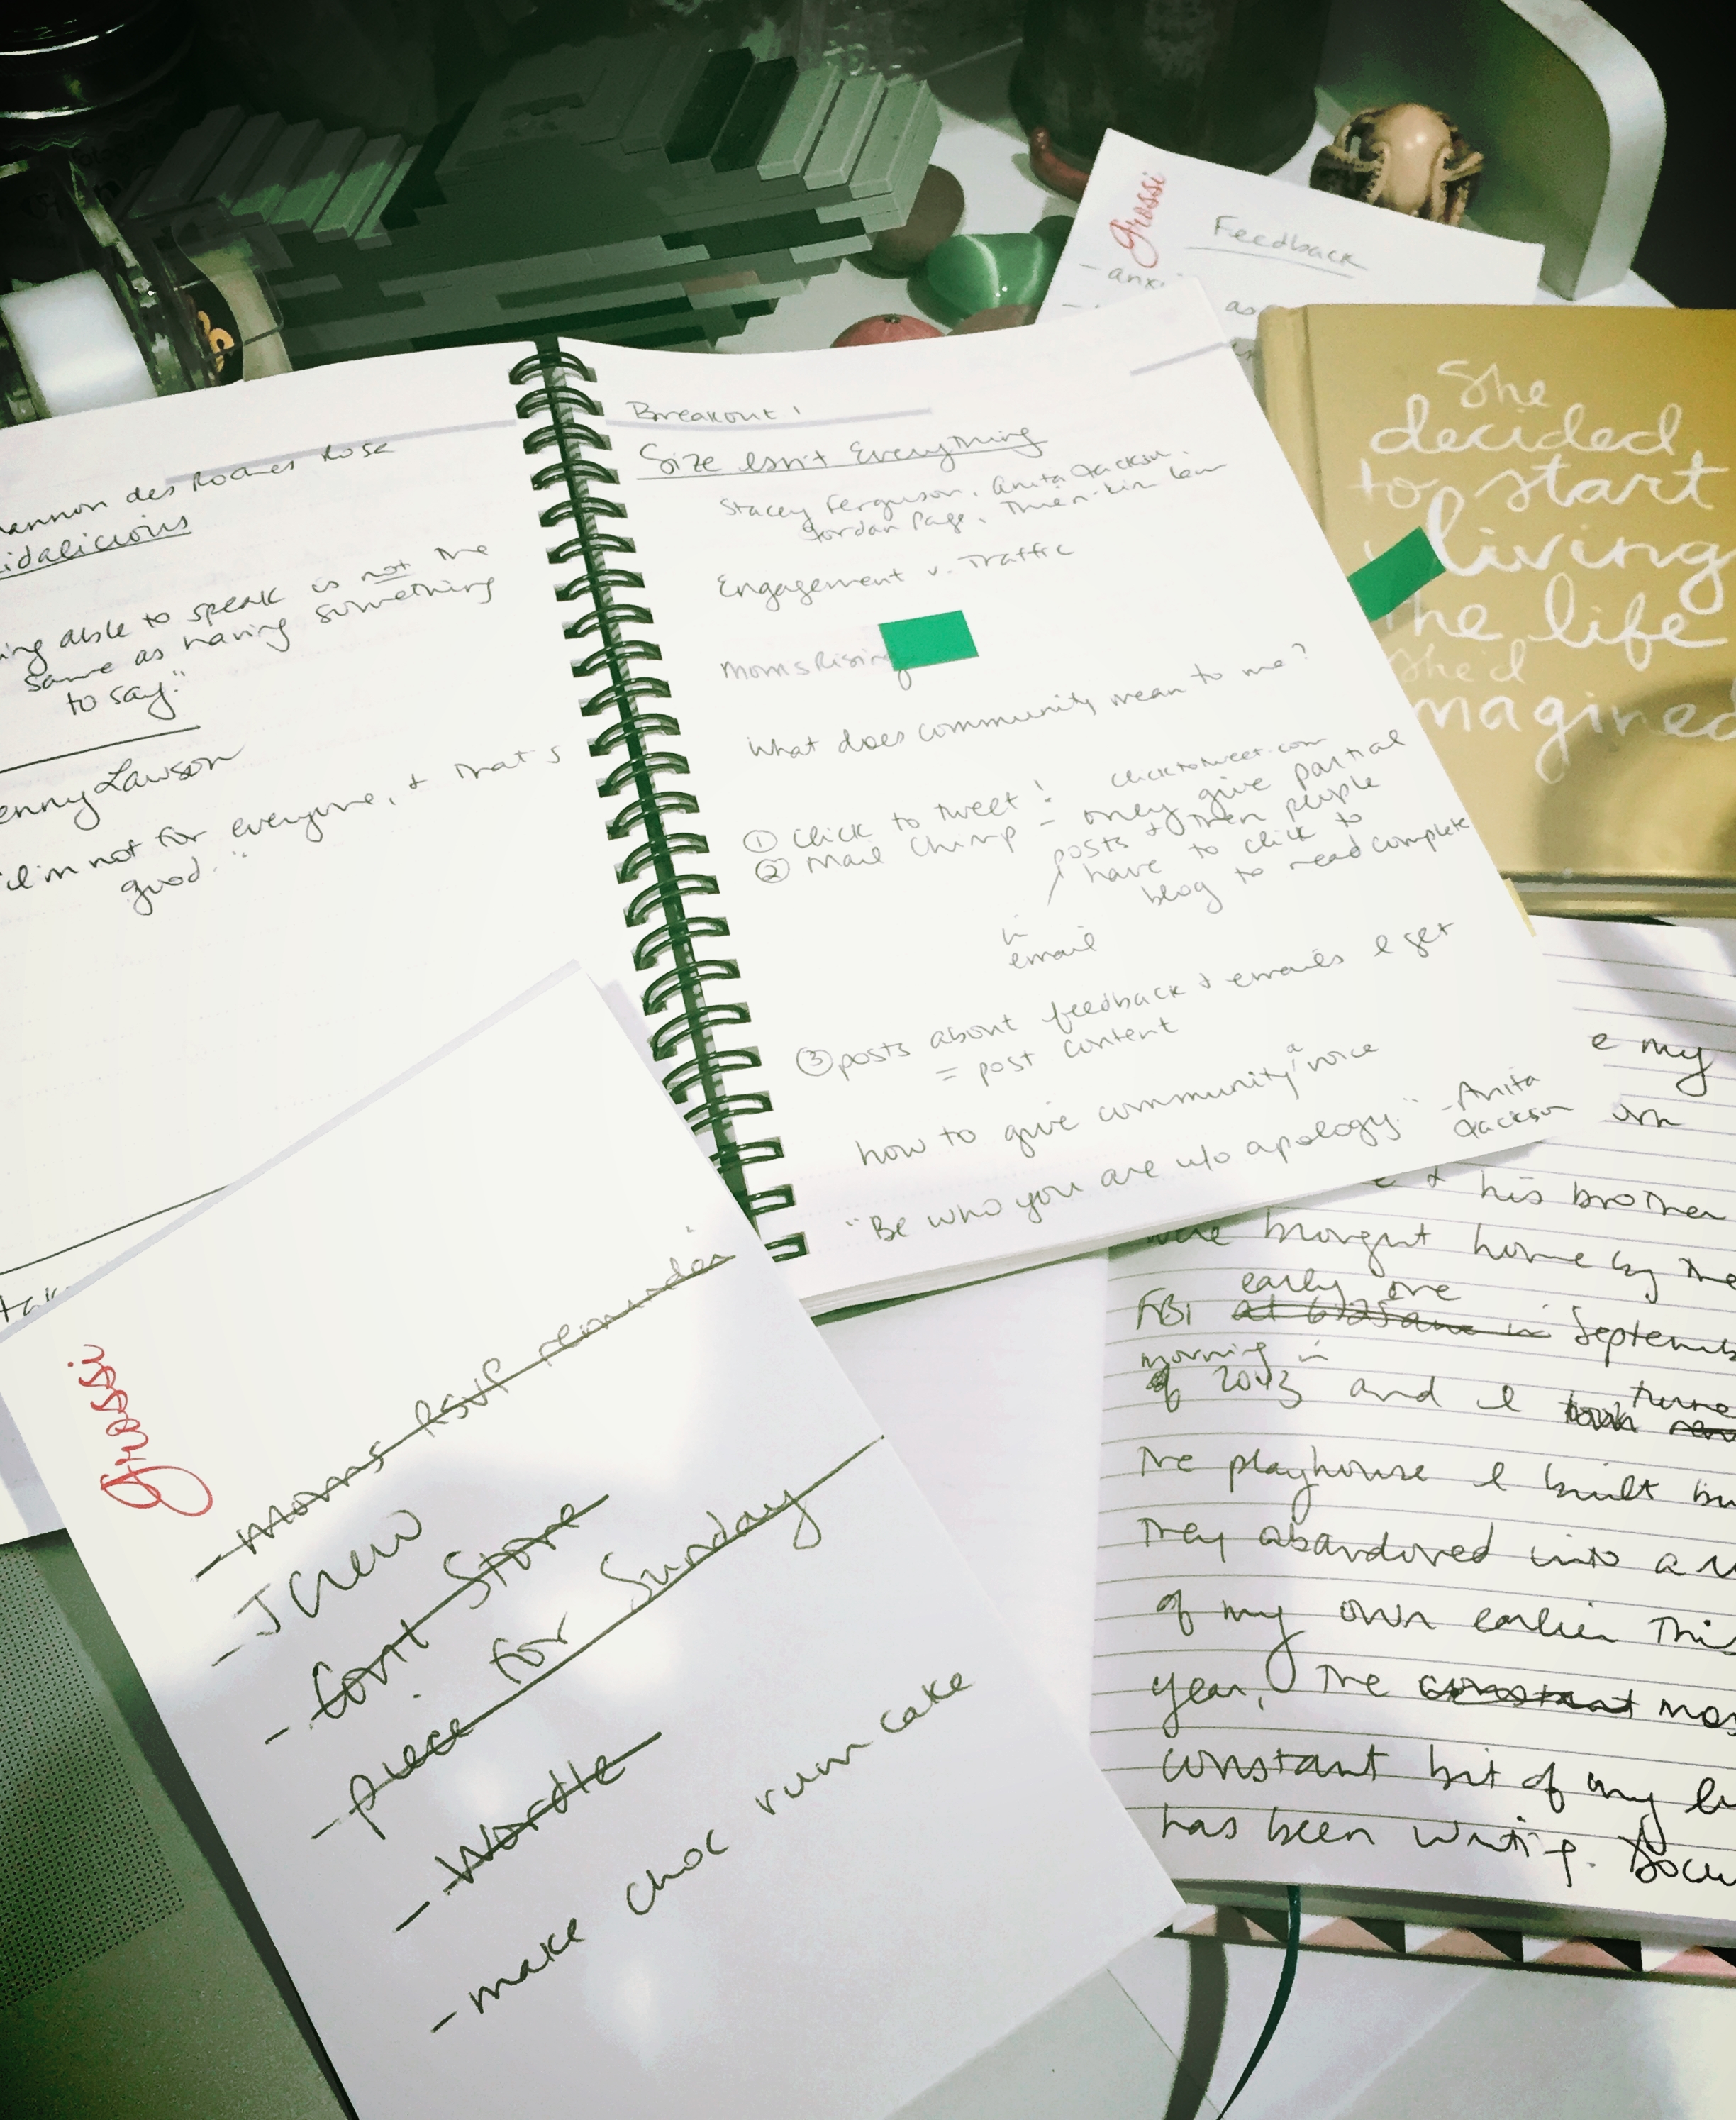 Grossi
Feedback
- anxi
as
She
decided
to start
living
the life
she'd
imagined
des Rosa
idalicious
ing able to speak is not the
same as having something
to say."
enny Lawson
"I'm not for everyone, & that's
good."
Breakout 1
Size Isn't Everything
Stacey Ferguson, Anita Jackson,
Jordan Page,
Engagement v. Traffic
MomsRising
What does community mean to me?
① Click to tweet! clicktotweet.com
② Mail Chimp - only give partial
posts & then people
have to click to
blog to read complete
in
email
③ posts about feedback & emails I get
= post content
how to give community a voice
"Be who you are w/o apology." - Anita
Jackson
Grossi
- Moms RSVP reminder
- J Crew
- Cont Store
- piece for Sunday
- Wordle
- make choc rum cake
e my
& his brother
were brought home by the
early one
FBI at in Septemb
morning in
of 2013 and I took turne
The playhouse I built bu
they abandoned into a
of my own earlier this
year, The constant mos
constant bit of my li
has been writing. Docu